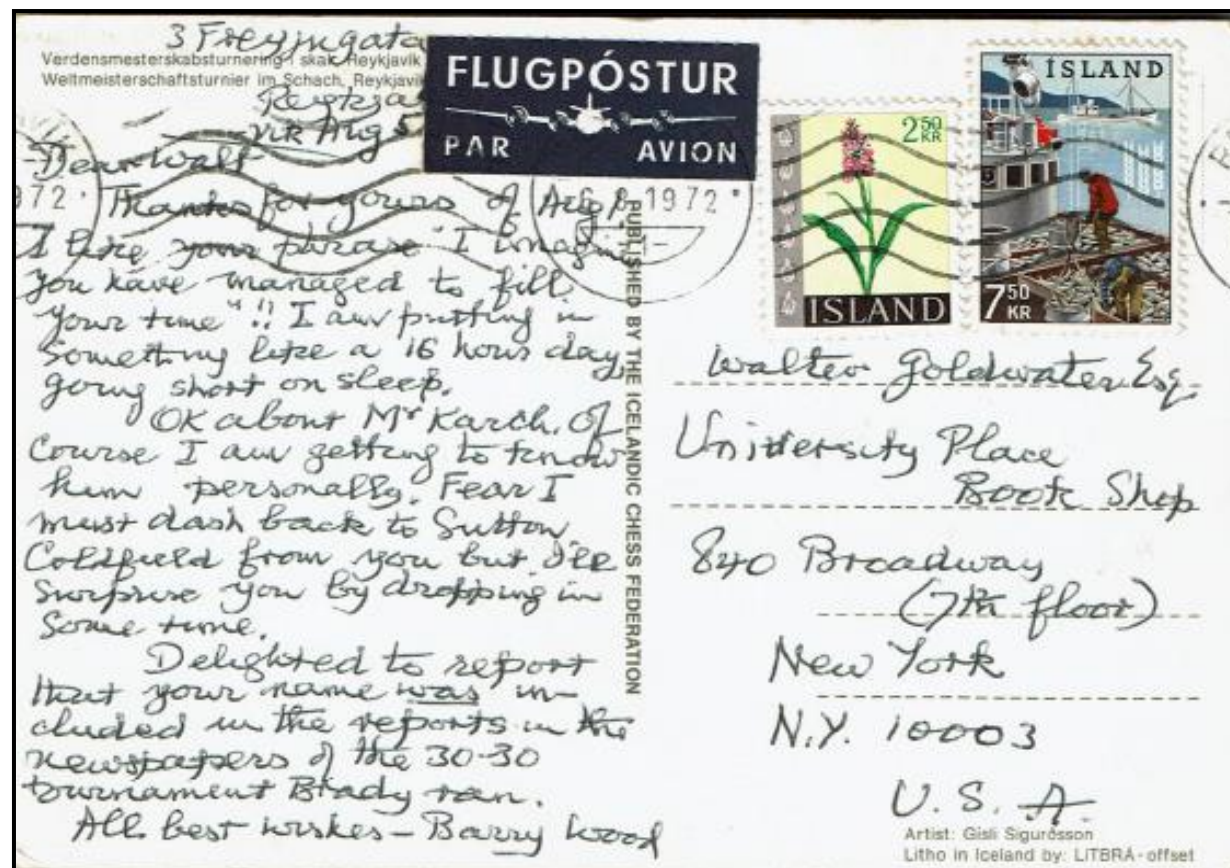 3 Freyjugata
Verdensmesterskabsturnering i skak, Reykjavik
Weltmeisterschaftsturnier im Schach, Reykjavik
Reykja
vik Aug 5
FLUGPÓSTUR
PAR AVION
Dear Walt
Thanks for yours of Aug 1.
I like your phrase "I imagine
you have managed to fill
your time"!! I am putting in
something like a 16 hour day,
going short on sleep.
OK about Mr Karch. Of
course I am getting to know
him personally. Fear I
must dash back to Sutton
Coldfield from you but I'll
surprise you by dropping in
some time.
Delighted to report
that your name was in-
cluded in the reports in the
newspapers of the 30-30
tournament Brady ran.
All best wishes - Barry Wood
PUBLISHED BY THE ICELANDIC CHESS FEDERATION
972
8 1972
2 50
KR
ISLAND
ÍSLAND
7 50
KR
Walter Goldwater Esq.
University Place
Book Shop
840 Broadway
(7th floor)
New York
N.Y. 10003
U.S.A.
Artist: Gisli Sigurðsson
Litho in Iceland by: LITBRÁ-offset